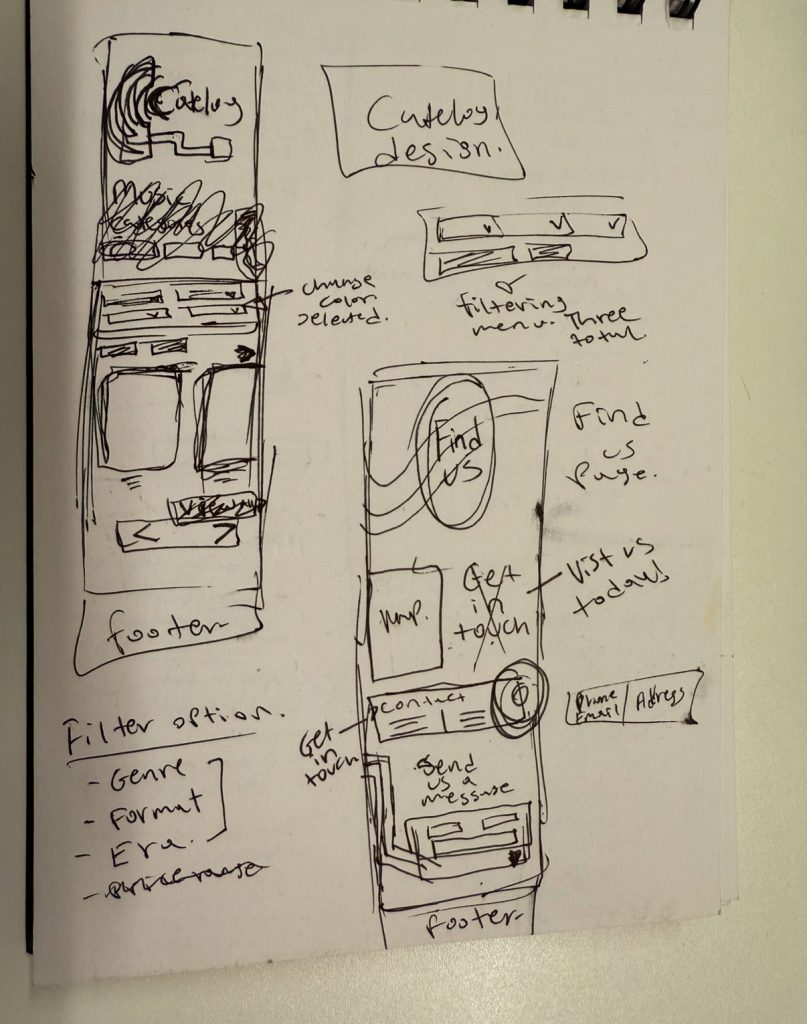 Catelog
Catelog
design.
Music
categories
change
color
selected.
filtering
menu. Three
total.
footer
Find
us
Find
us
Page.
map.
Get
in
touch
Vist us
today!
contact
Get
in
touch
Phone
Email
Address
Send
us a
message
footer
Filter option.
- Genre
- Format
- Era.